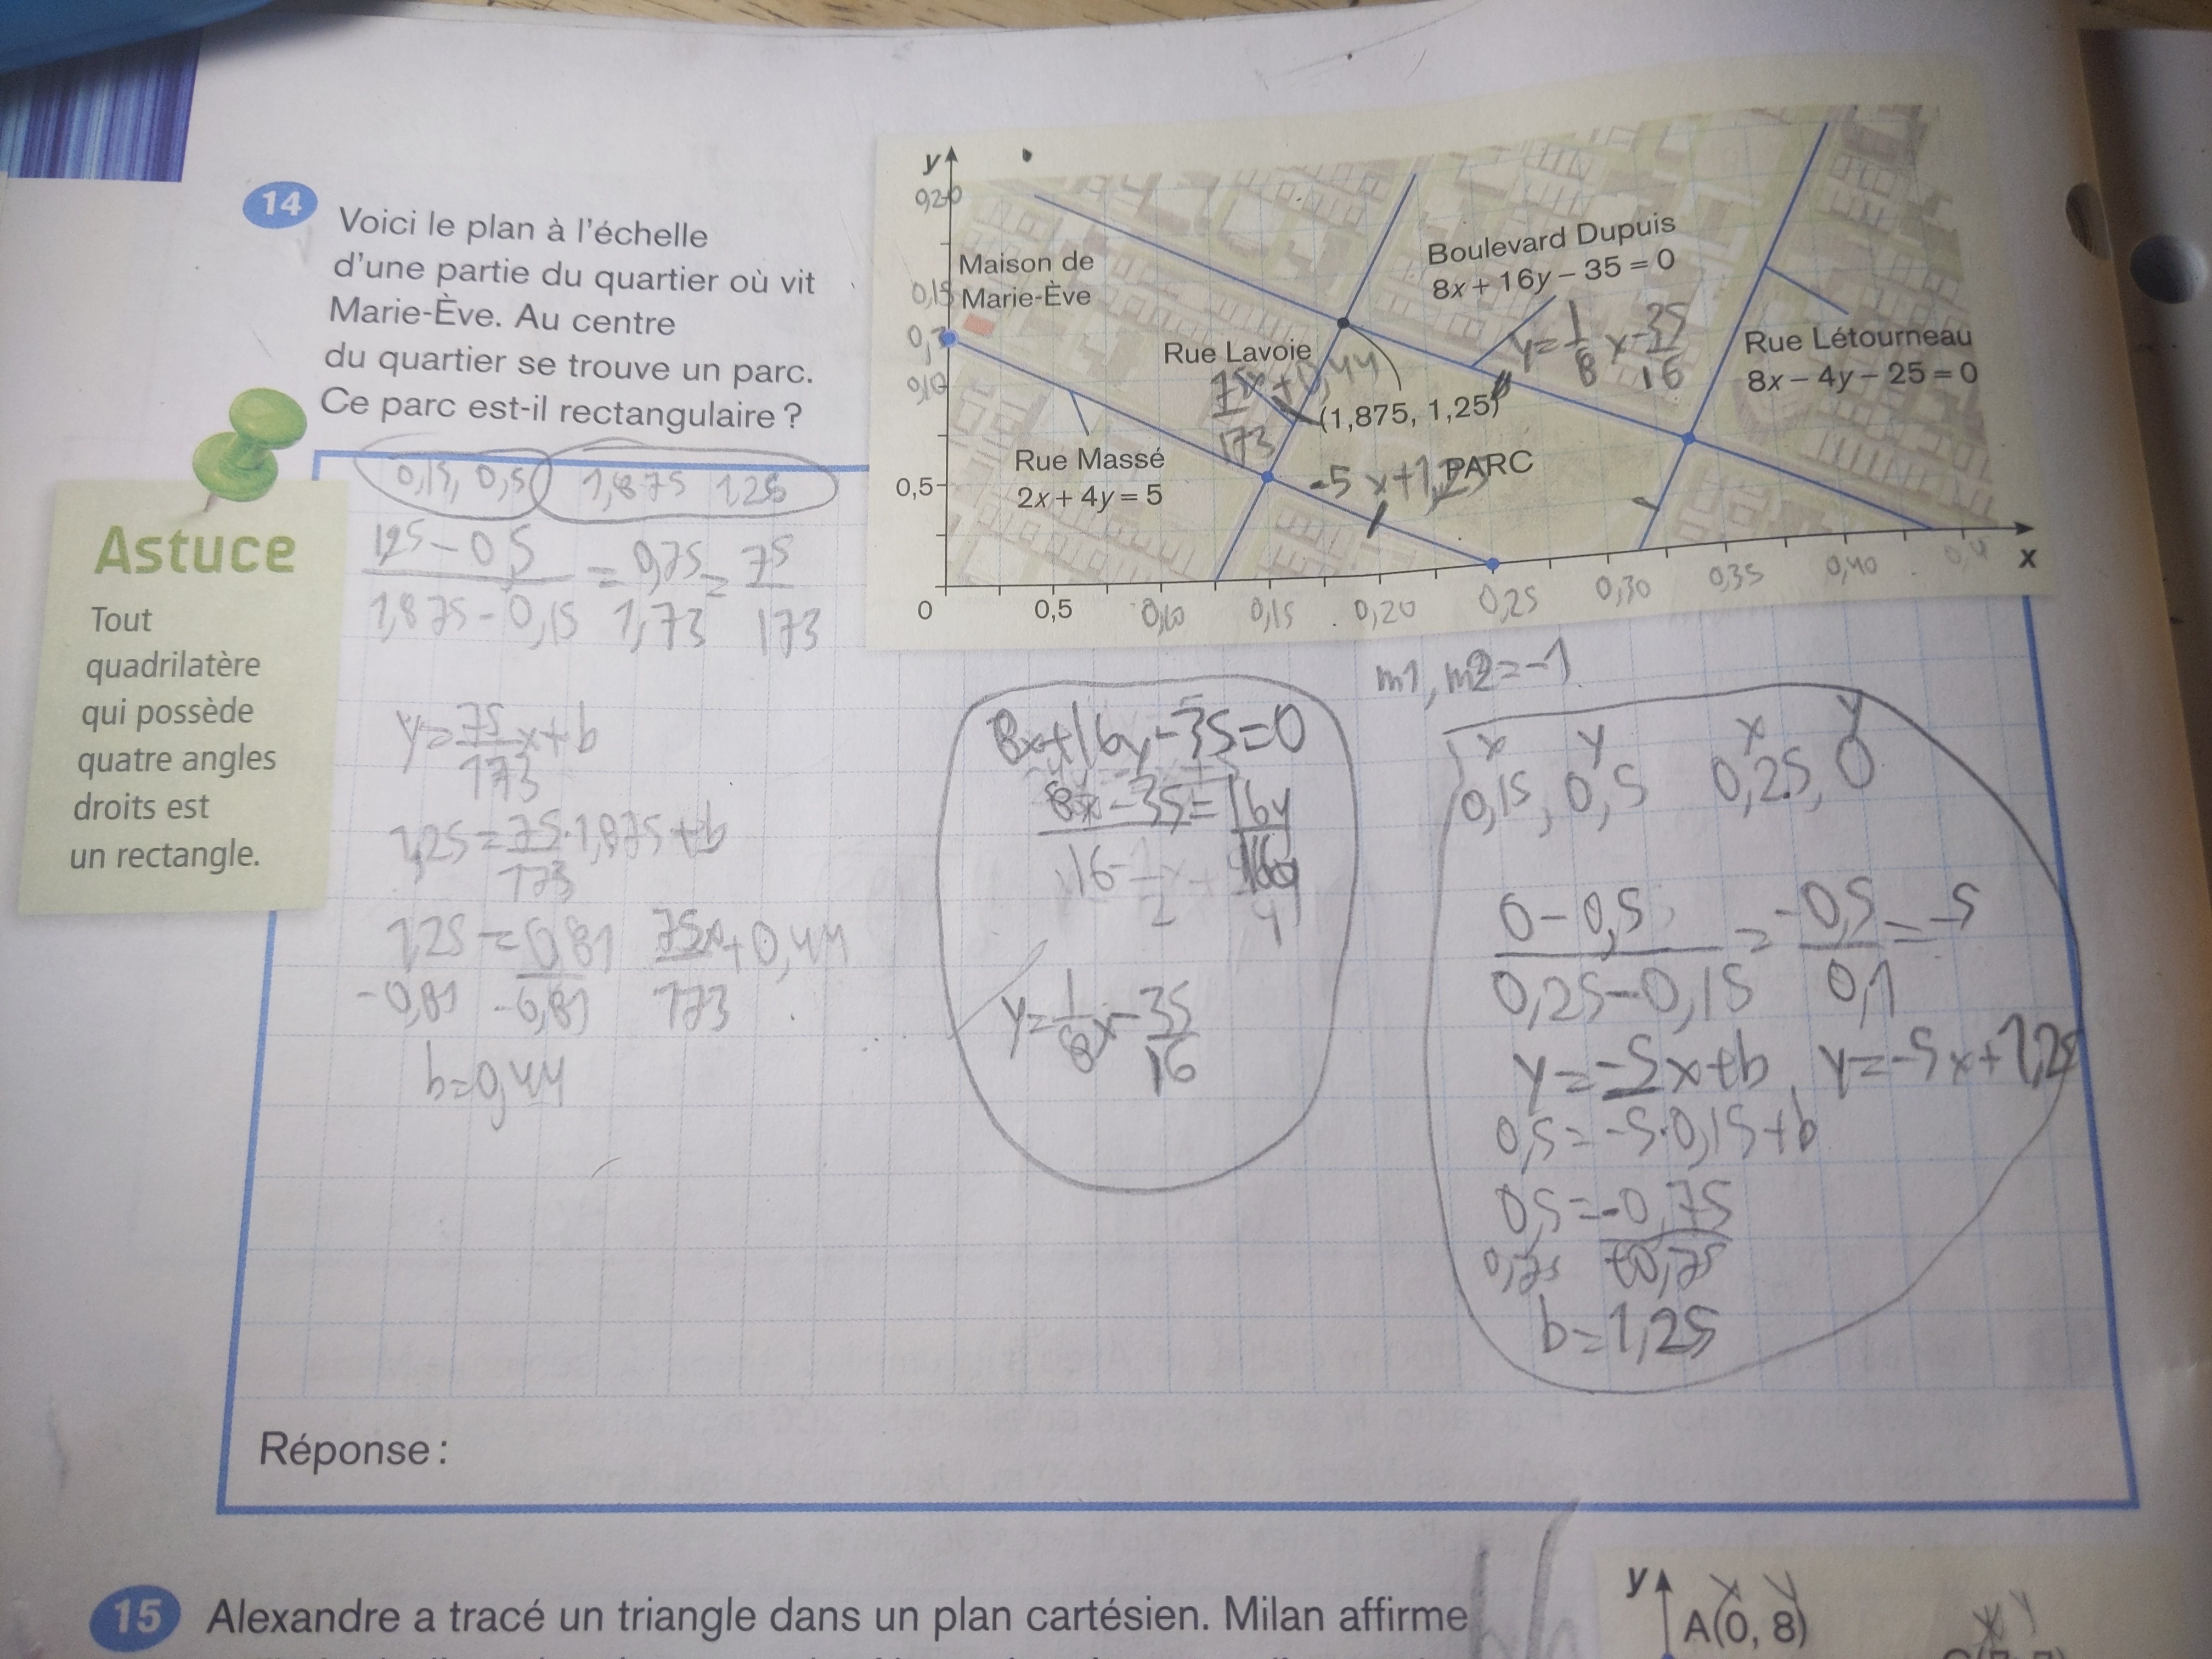 14
Voici le plan à l'échelle
d'une partie du quartier où vit
Marie-Ève. Au centre
du quartier se trouve un parc.
Ce parc est-il rectangulaire ?
y
0,20
Maison de
Marie-Ève
0,15
0,10
0,5
Boulevard Dupuis
8x + 16y – 35 = 0
y = 1/8 x - 35/16
Rue Létourneau
8x – 4y – 25 = 0
Rue Lavoie
75x/173 + 0,44
(1,875, 1,25)
Rue Massé
2x + 4y = 5
-5x+1,25
PARC
x
0
0,5
0,10
0,15
0,20
0,25
0,30
0,35
0,40
Astuce
Tout
quadrilatère
qui possède
quatre angles
droits est
un rectangle.
0,15, 0,5 1,875 1,25
1,25 - 0,5 / 1,875 - 0,15 = 0,75 / 1,73 = 75 / 173
y = 75/173 x + b
1,25 = 75/173 · 1,875 + b
1,25 = 0,81
-0,81 -0,81
75x/173 + 0,44
b=0,44
8x+16y-35=0
8x - 35 = 16y
16
y = 1/8 x - 35/16
m1, m2 = -1
x y x y
0,15, 0,5 0,25, 0
0 - 0,5 / 0,25 - 0,15 = -0,5 / 0,1 = -5
y = -5x+b, y = -5x+1,25
0,5 = -5·0,15+b
0,5 = -0,75
0,75 +0,75
b=1,25
Réponse :
15
Alexandre a tracé un triangle dans un plan cartésien. Milan affirme
y
x y
A(0, 8)
x y